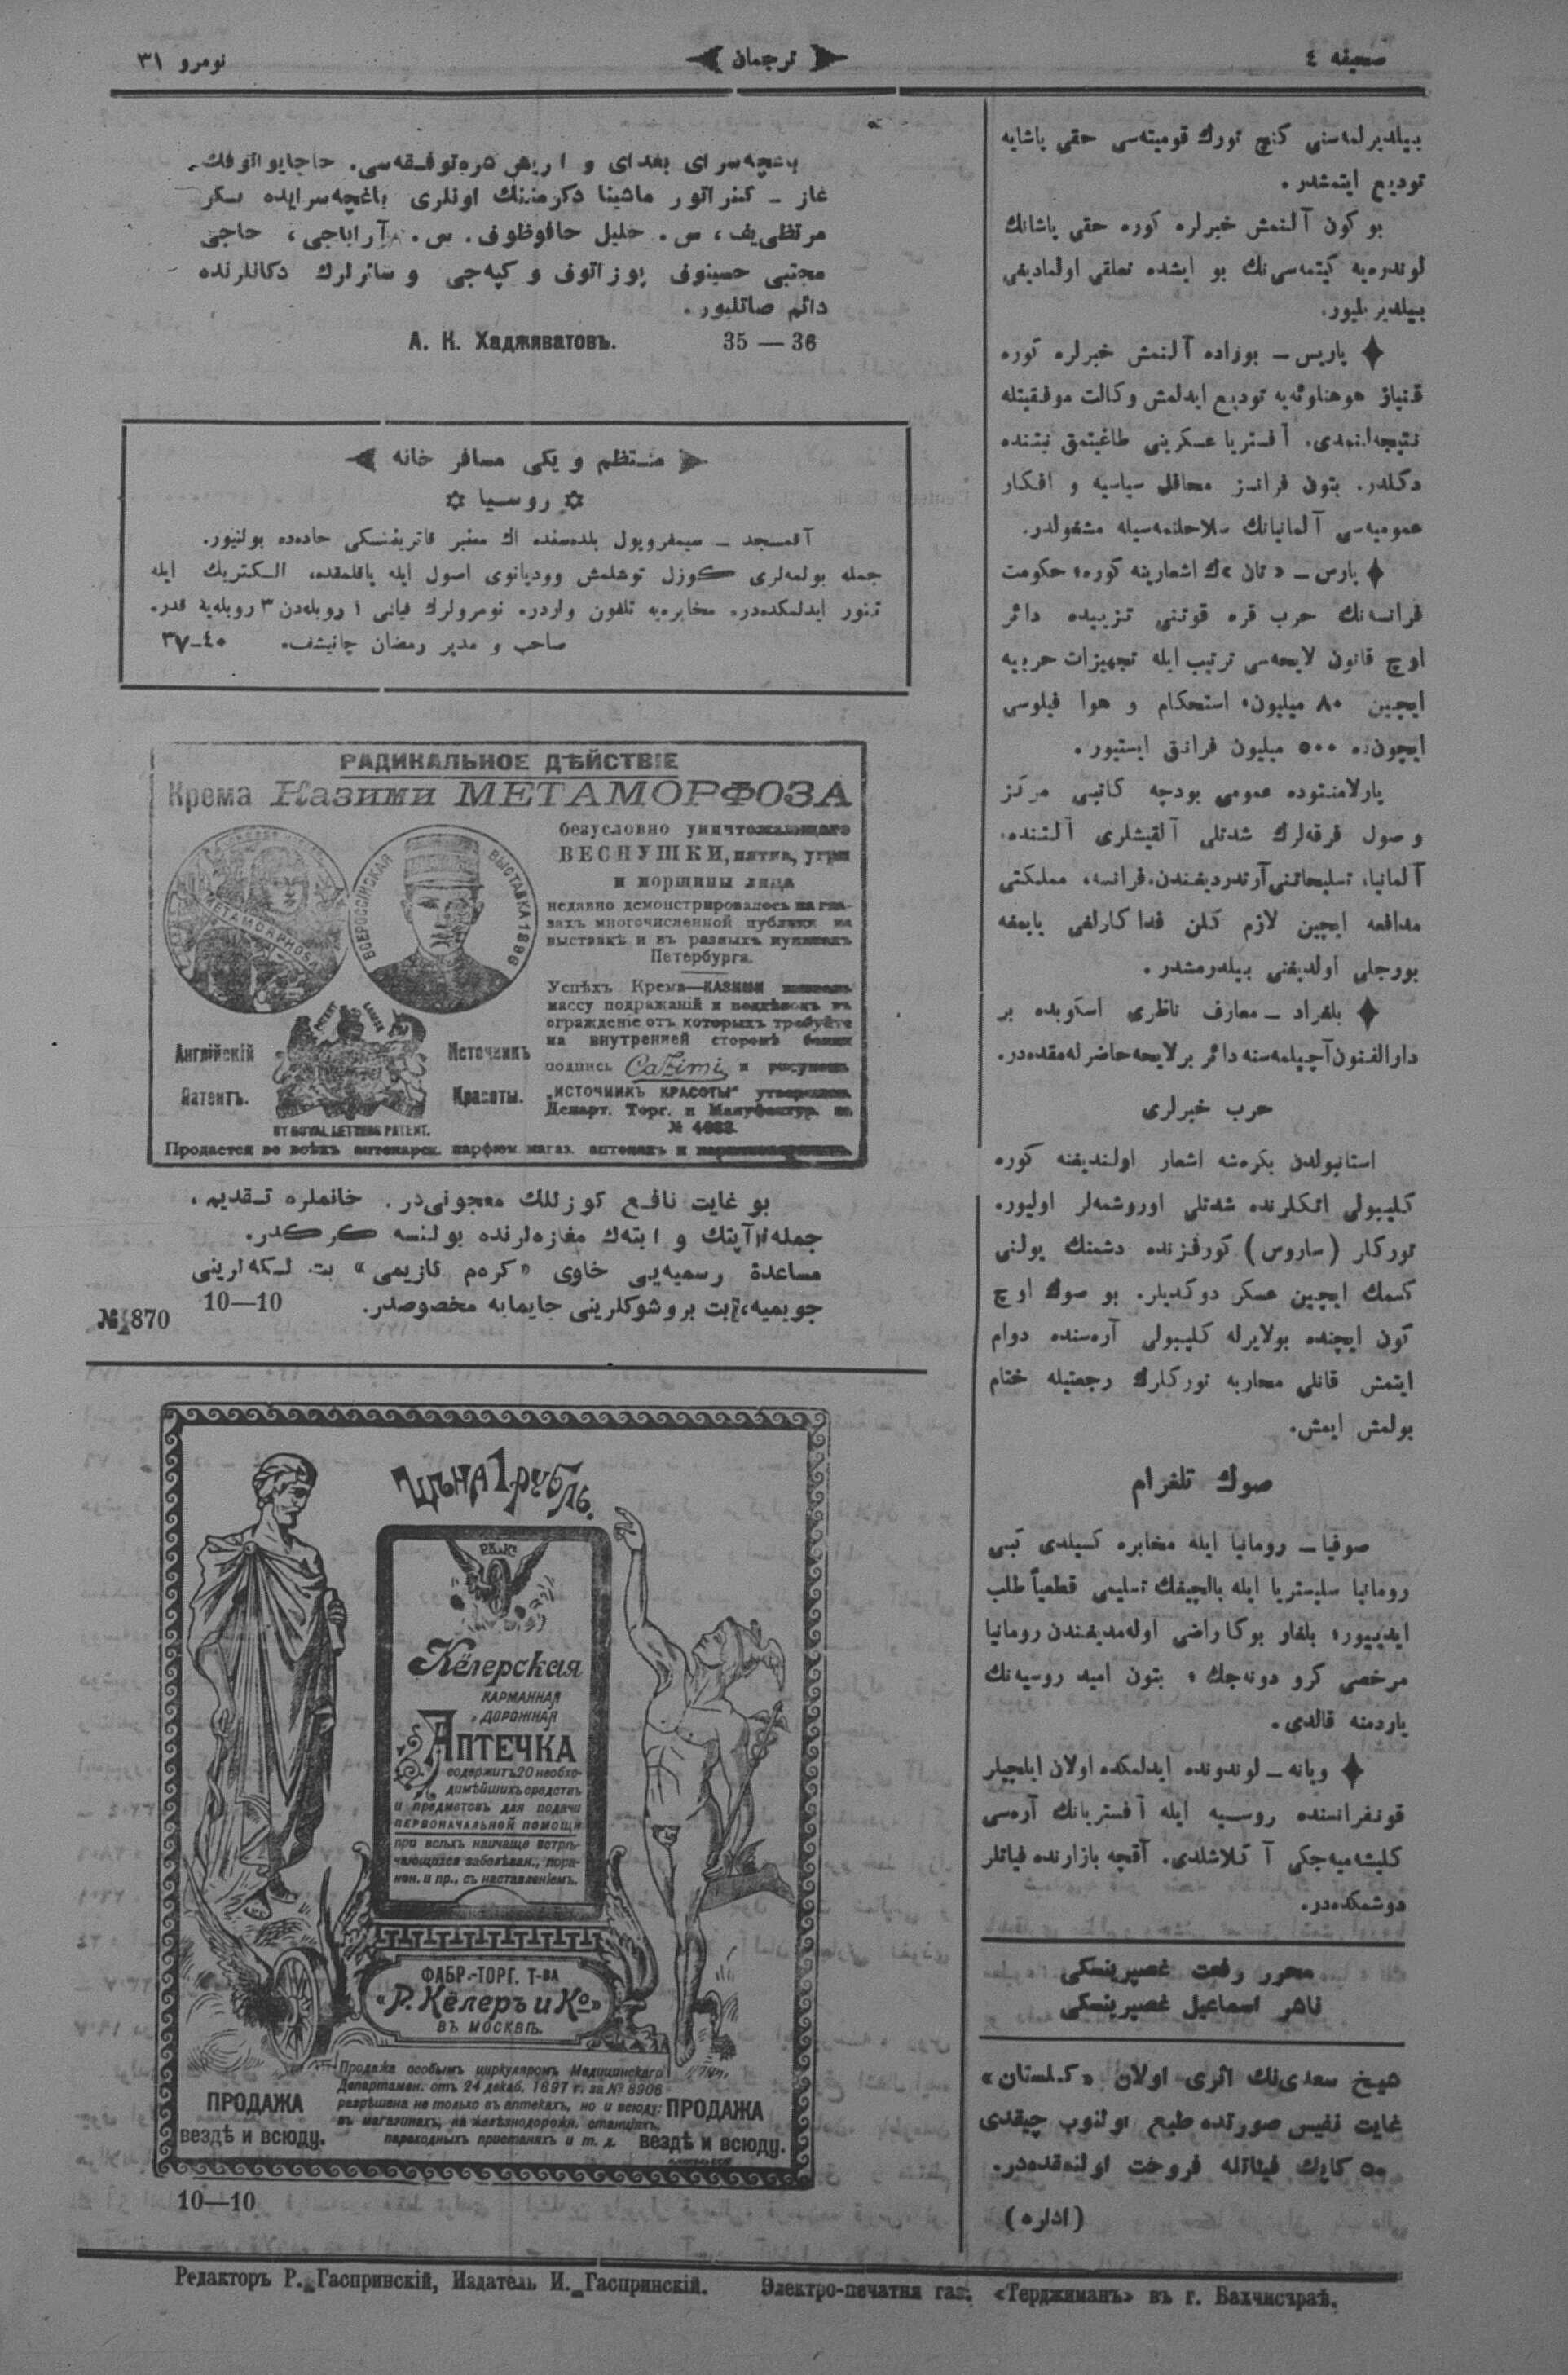 صحیفه ٤
ترجمان
نومرو ٣١
بیلدیرلمه‌سنی کنج تورك قومیته‌سی حقی پاشایه
تودیع ایتمشدر.
بو کون آلنمش خبرلره کوره حقی پاشانك
لوندره‌یه کیتمه‌سی‌نك بو ایشده تعلقی اولمادیغی
بیلدیریلیور.
پاریس — بوراده آلنمش خبرلره کوره
هوهنلوئه‌یه تودیع ایدلمش وکالت موفقیتله
نتیجه‌لنمدی. آفستریا عسکرینی طاغیتمق نیتنده
دکلدر. بتون فرانسز محافل سیاسیه و افکار
عمومیه‌سی آلمانیانك سلاحلنمه‌سیله مشغولدر.
پارس — «تان»ك اشعارینه کوره، حکومت
فرانسه‌نك حرب قره قوتنی تزییده دائر
اوچ قانون لایحه‌سی ترتیب ایله تجهیزات حربیه
ایچین ٨٠ میلیون، استحکام و هوا فیلوسی
ایچون‌ده ٥٠٠ میلیون فرانق ایستیور.
پارلامنتوده عمومی بودجه کاتبی مرکز
و صول فرقه‌لرك شدتلی آلقیشلری آلتنده،
آلمانیا، تسلیحاتنی آرتدردیغندن، فرانسه، مملکتی
مدافعه ایچین لازم کلن فداکارلغی یاپمغه
بورجلی اولدیغنی بیلدرمشدر.
بلغراد — معارف ناظری اسکوبده بر
دارالفنون آچیلمه‌سنه دائر بر لایحه حاضرله‌مقده‌در.
حرب خبرلری
استانبولدن بکره‌شه اشعار اولندیغنه کوره
کلیبولی اتکلرنده شدتلی اوروشمه‌لر اولیور.
تورکلر (ساروس) کورفزنده دشمنك یولنی
کسمك ایچین عسکر دوکدیلر. بو صوك اوچ
کون ایچنده بولایرله کلیبولی آره‌سنده دوام
ایتمش قانلی محاربه تورکلرك رجعتیله ختام
بولمش ایمش.
صوك تلغرام
صوفیا — رومانیا ایله مخابره کسیلدی
رومانیا سلیستریا ایله بالچیغك تسلیمی قطعیاً طلب
ایدییور؛ بلغار بوکا راضی اوله‌مدیغندن رومانیا
مرخصی کرو دونه‌جك؛ بتون امید روسیه‌نك
یاردمنه قالدی.
ویانه — لوندونده ایدلمکده اولان ایلچیلر
قونفرانسنده روسیه ایله آفستریانك آره‌سی
کلیشه‌میه‌جکی آکلاشلدی. آقچه بازارنده فیاتلر
دوشمکده‌در.
محرر رفعت غصپرینسکی
ناشر اسماعیل غصپرینسکی
شیخ سعدی‌نك اثری اولان «کلستان»
غایت نفیس صورتده طبع اولنوب چیقدی
٥٠ کاپك فیئاتله فروخت اولنمقده‌در.
(اداره)
باغچه‌سرای بغدای و حاجایواتوفك
غاز - کنراتور ماشینا دکرمننك اونلری باغچه‌سرایده بکر
مرتظی‌یف، س. خلیل حافوظوف. س. آراباجی، حاجی
مجتبی حسینوف بوزاتوف و کپه‌جی و سائرلرك دکانلرنده
دائم صاتلیور.
35 — 36 А. К. Хадживатовъ.
منتظم و یکی مسافر خانه
روسیا
آقمسجد — سیمفروپول بلده‌سنده اك معتبر قاتریننسکی جاده‌ده بولنیور.
جمله بولمه‌لری کوزل توشلمش وودیانوی اصول ایله یاقلمقده، الکتریك ایله
تنور ایدلمکده‌در. مخابره‌یه تلفون واردر. نومرولرك فیاتی ١ روبله‌دن ٣ روبله‌یه قدر.
صاحب و مدیر رمضان چانیشف. ٣٧-٤٠
РАДИКАЛЬНОЕ ДѢЙСТВІЕ
Крема Казими МЕТАМОРФОЗА
безусловно уничтожающаго
ВЕСНУШКИ, пятна, угри
и морщины лица
недавно демонстрировалось на гла-
захъ многочисленной публики на
выставкѣ и въ разныхъ пунктахъ
Петербурга.
Успѣхъ Крема—КАЗИМИ вызвалъ
массу подражаній и поддѣлокъ въ
огражденіе отъ которыхъ требуйте
на внутренней сторонѣ банки
подпись Cazimi и рисунокъ
„ИСТОЧНИКЪ КРАСОТЫ“ утвержден.
Департ. Торг. и Мануфактур. за
№ 4683.
METAMORPHOSA
ВСЕРОССІЙСКАЯ ВЫСТАВКА 1896
Англійскій
Патентъ.
Источникъ
Красоты.
BY ROYAL LETTERS PATENT.
Продается во всѣхъ аптекарск. парфюм. магаз. аптекахъ и
بو غایت نافع کوزللك معجونی‌در. خانملره تقدیم،
جمله آپتك و ابته‌ك مغازه‌لرنده بولنسه کرکدر.
مساعدۀ رسمیه‌یی حاوی «کره‌م قازیمی» بت لکه‌لرینی
جویمیه، بت بروشوکلرینی جایمایه مخصوصدر. 10—10
№ 870
ЦѢНА 1 РУБЛЬ.
Р.К.и К°
Кёлерская
КАРМАННАЯ
и ДОРОЖНАЯ
АПТЕЧКА
содержитъ 20 необхо-
димѣйшихъ средствъ
и предметовъ для подачи
ПЕРВОНАЧАЛЬНОЙ ПОМОЩИ
при всѣхъ наичаще встрѣ-
чающихся заболѣван., пора-
нен. и пр., съ наставленіемъ.
ФАБР.-ТОРГ. Т-ВА
«Р. Кёлеръ и К°»
ВЪ МОСКВѢ.
Продажа особымъ циркуляромъ Медицинскаго
Департамен. отъ 24 декаб. 1897 г. за № 8906
разрѣшена не только въ аптекахъ, но и всюду:
въ магазинахъ, на желѣзнодорожн. станціяхъ,
пароходныхъ пристаняхъ и т. д.
ПРОДАЖА
вездѣ и всюду.
ПРОДАЖА
вездѣ и всюду.
10—10
Редакторъ Р. Гаспринскій, Издатель И. Гаспринскій. Электро-печатня газ. «Терджиманъ» въ г. Бахчисараѣ.